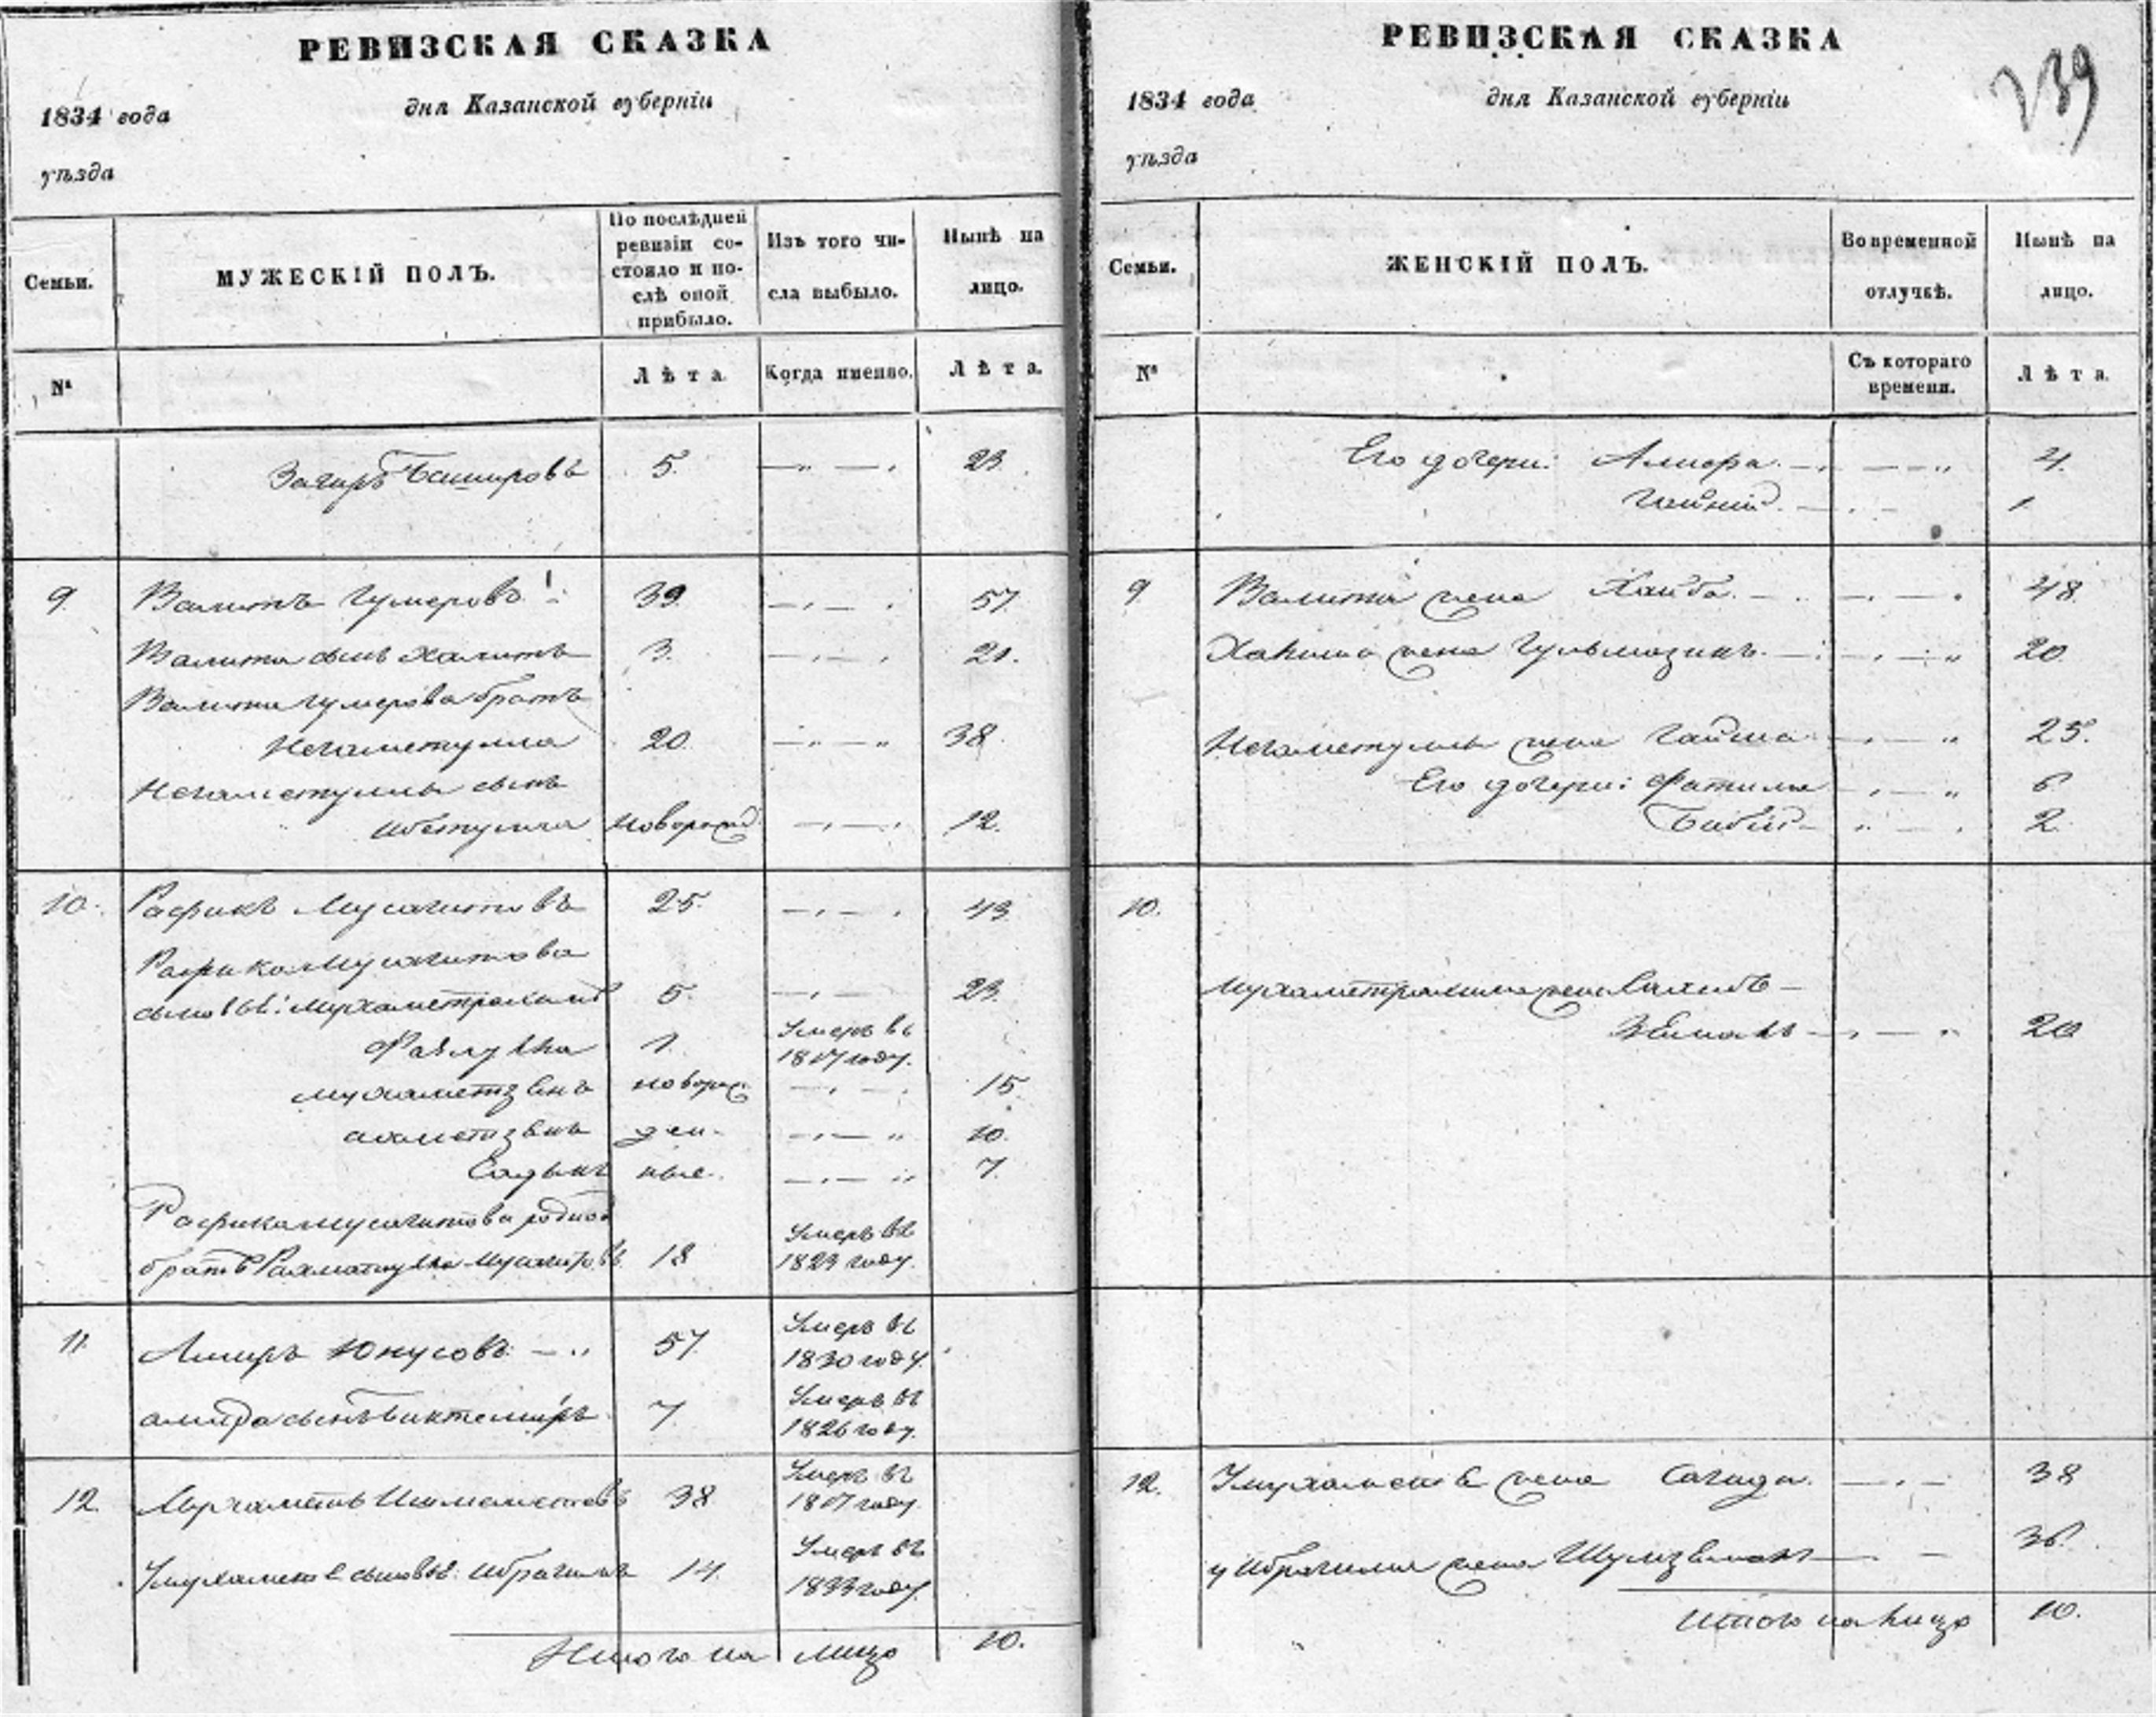 РЕВИЗСКАЯ СКАЗКА
1834 года
дня Казанской губерніи
уѣзда
Семьи.
МУЖЕСКІЙ ПОЛЪ.
По послѣдней ревизіи состояло и послѣ оной прибыло.
Изъ того числа выбыло.
Нынѣ на лицо.
№
Лѣта.
Когда именно.
Лѣта.
Загиръ Башировъ 5. 23.
9. Валитъ Гумеровъ 39. 57.
Валита сынъ Халитъ 3. 21.
Валита Гумерова братъ
Негаметулла 20. 38.
Негаметуллы сынъ
новорожд. 12.
10. Рафикъ Мусагитовъ 25. 43.
Рафика Мусагитова
сыновья: Мухаметрахимъ 5. 23.
1. Умеръ въ 1817 году.
Мухаметзянъ новорож- 15.
Ахметзянъ ден- 10.
Садыкъ ные. 7.
Рафика Мусагитова родной
братъ Рахматулла Мусагитовъ 18 Умеръ въ 1823 году.
11. Амиръ Юнусовъ 57. Умеръ въ 1830 году.
Амира сынъ Биктемиръ 7. Умеръ въ 1826 году.
12. 38. Умеръ въ 1817 году.
сыновья: Ибрагимъ 14. Умеръ въ 1833 году.
Итого на лицо 10.
РЕВИЗСКАЯ СКАЗКА
239
1834 года
дня Казанской губерніи
уѣзда
Семьи.
ЖЕНСКІЙ ПОЛЪ.
Во временной отлучкѣ.
Нынѣ на лицо.
№
Съ котораго времени.
Лѣта.
Его дочери: 4.
1
9. Валита жена Хаиба 48.
жена 20.
Негаметуллы жена 25.
Его дочери: Фатима 6
Бибій 2.
10.
Мухаметрахима жена
20
12. жена Сагида 38
у Ибрагима жена 36.
Итого на лицо 10.